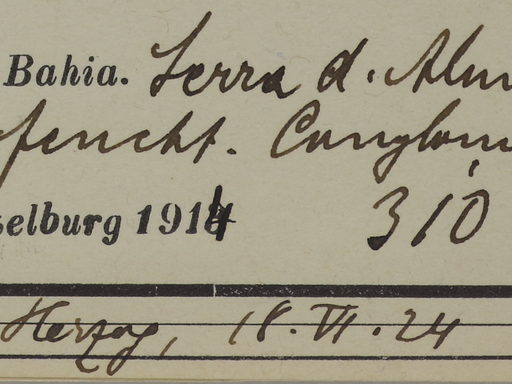 Bahia. Serra d. Alm
feucht. Conglom
selburg 1914 310
Herzog, 18. VI. 24